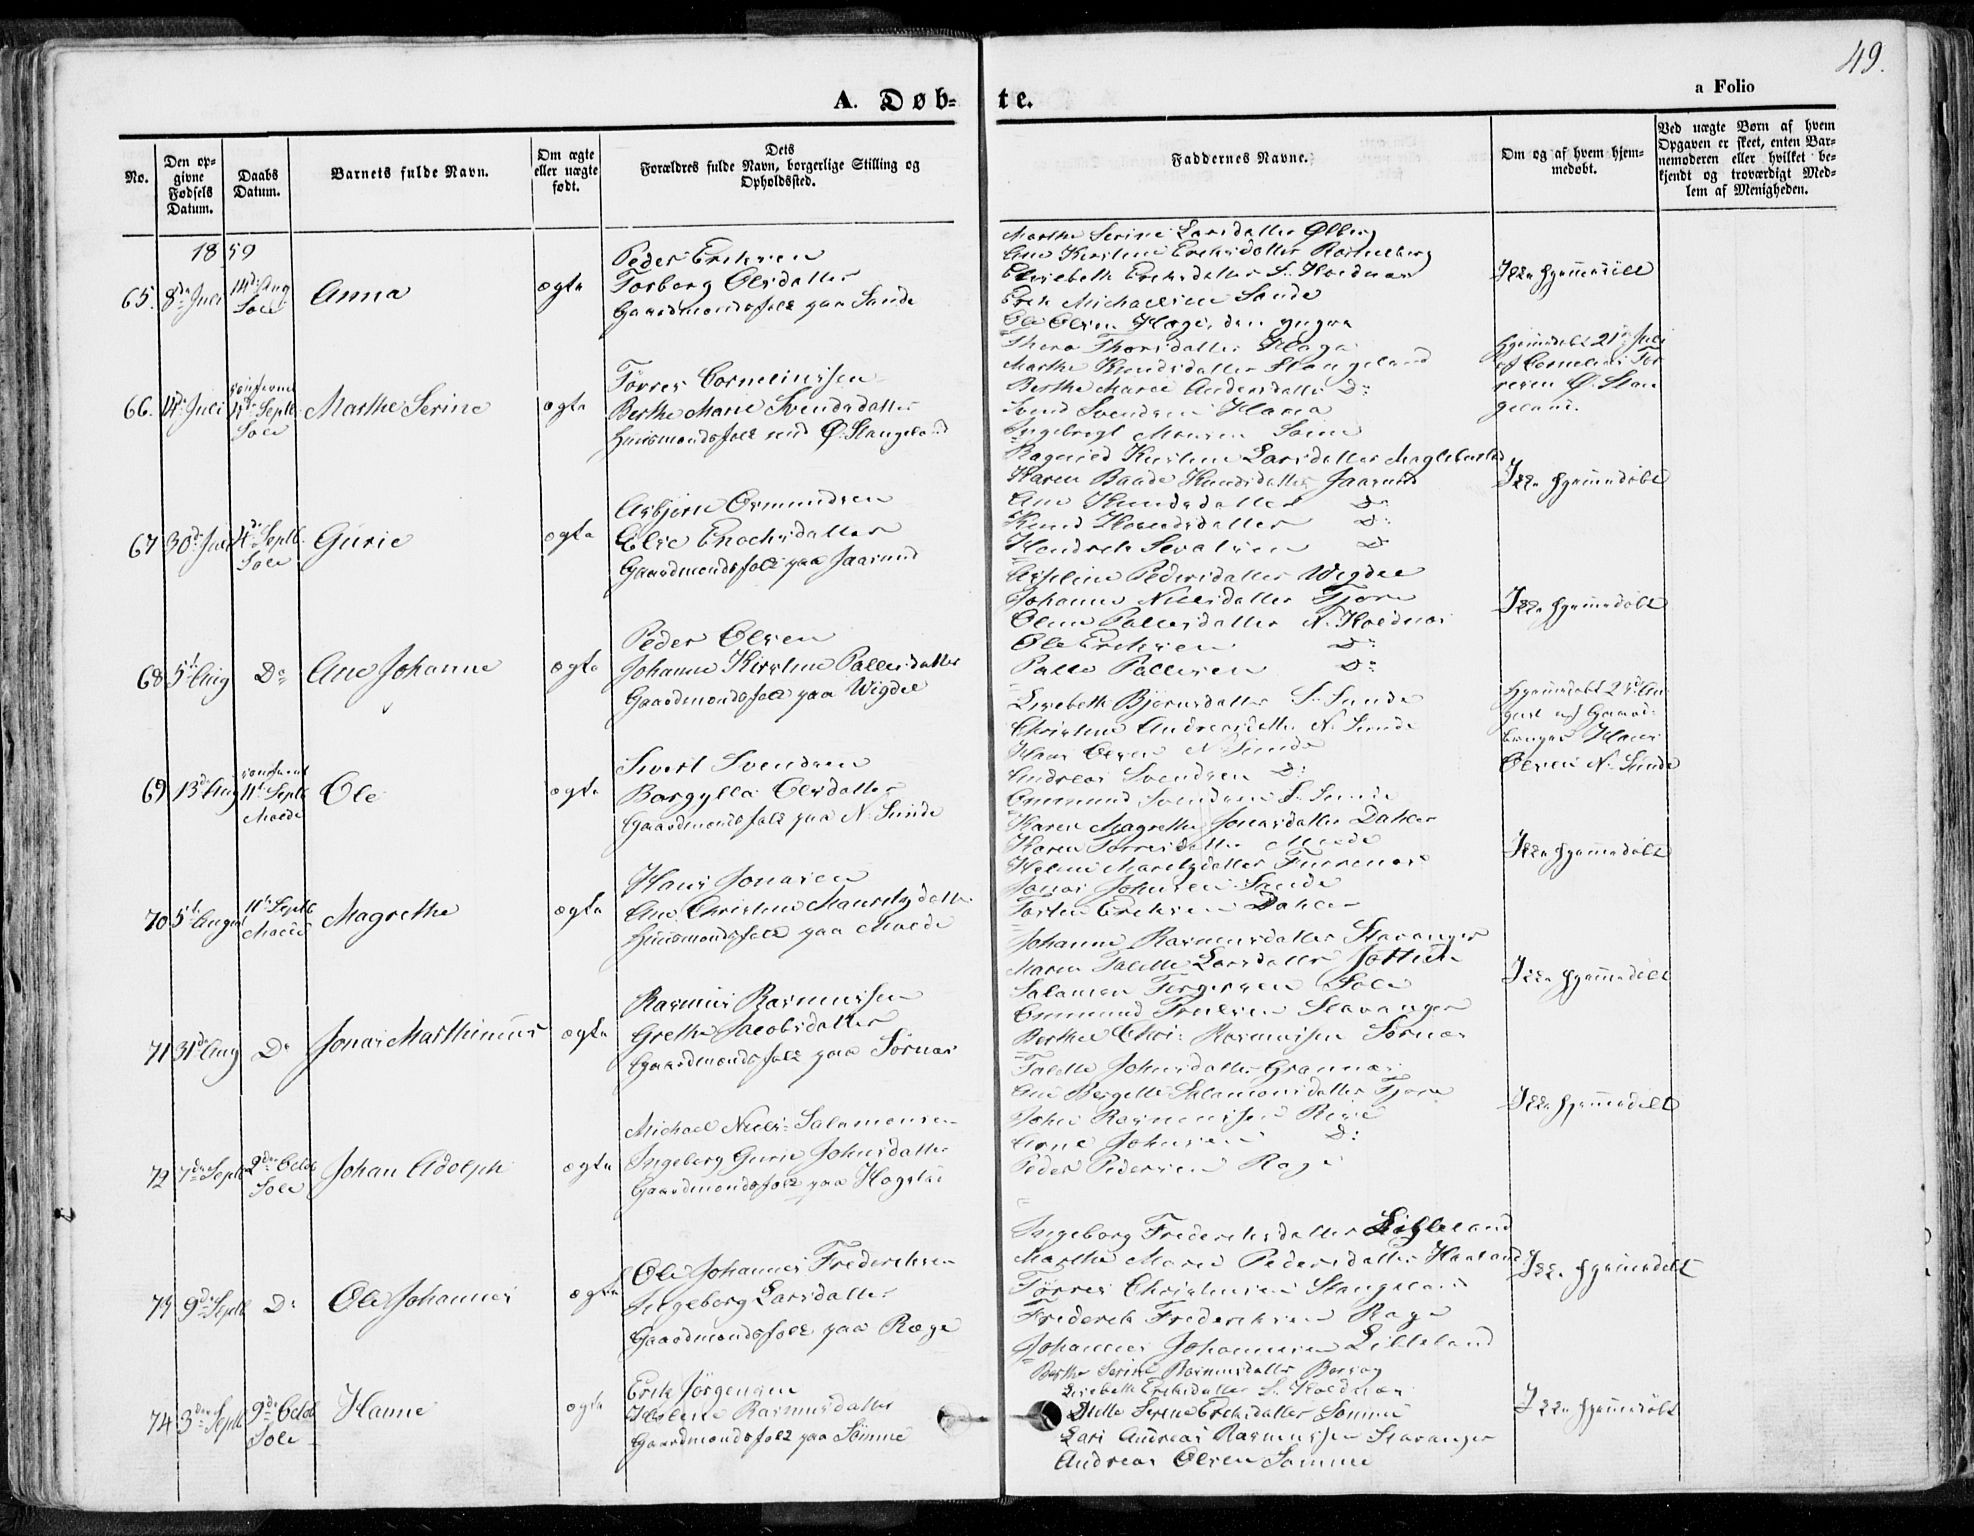 49.
A. Døb-
te.
a Folio
No.
Den op-
givne
Fødsels
Datum.
Daabs
Datum.
Barnets fulde Navn.
Om ægte
eller uægte
født.
Dets
Forældres fulde Navn, borgerlige Stilling og
Opholdssted.
Faddernes Navne.
Om og af hvem hjem-
medøbt.
Ved uægte Børn af hvem
Opgaven er skeet, enten Bar-
nemoderen eller hvilket be-
kjendt og troværdigt Med-
lem af Menigheden.
1859
65. 8de Juli
14de Aug
Sole
Anna
ægte
Peder Eriksen
Torborg Olsdatter
Gaardmandsfolk paa Sande
Marthe Serine Larsdatter Ølberg
Ane Kirstine Eriksdatter
Elisebeth Eriksdatter S. Koldnæs
Erik Michaelsen Sande
Ole Olsen Hage, den yngre
Ikke hjemmedøbt
66. 14de Juli
4de Septb.
Sole
Marthe Serine
ægte
Törres Corneliussen
Berthe Marie Svendsdatter
Huusmandsfolk ved Ø. Stangeland
Thore Thorsdatter Haga
Marthe Knudsdatter Stangeland
Berthe Marie Andersdatter Do
Svend Svendsen Haga
Ingebregt Monsen Sømme
Hjemmedøbt 21de Juli
af Cornelius Tör-
resen Ø. Stan-
geland.
67 30de Juli
4de Septb.
Sole
Gurie
ægte
Asbjørn Osmundsen
Else Enochsdatter
Gaardmandsfolk paa Jaasund
Ragnild Kirstine Larsdatter
Karen Baade Knudsdatter Jaasund
Ane Knudsdatter Do
Knud Do
Hendrik Sevalsen Do
Ikke hjemmedøbt
68 5te Aug
Do
Ane Johanne
ægte
Peder Olsen
Johanne Kirstine Pallesdatter
Gaardmandsfolk paa Wigdel
Asseline Pedersdatter Wigdel
Johanne Nielsdatter Tjora
Oline Pallesdatter N. Koldnæs
Ole Eriksen Do
Palle Pallesen Do
Ikke hjemmedøbt
69 13de Aug
11te Septb
Malde
Ole
ægte
Sivert Svendsen
Borgylla Olsdatter
Gaardmandsfolk paa N. Sunde
Lisebeth Bjørnsdatter S. Sunde
Christine Andreasdatter N. Sunde
Hans Olsen N. Sunde
Andreas Svendsen Do
Ommund Svendsen S. Sunde
Hjemmedøbt
gust af Gaard-
bruger Hans
Olsen N. Sunde
70 5te August
11te Septb
Malde
Magrethe
ægte
Hans Jonasen
Ane Christine Mauritzdatter
Huusmandsfolk paa Malde
Karen Magrethe Jonasdatter Dahle
Karen Torresdatter Malde
Helene Mauritzdatter
Jonas Johnsen Sunde
Torsten Eriksen Dahle
Ikke hjemmedøbt
71 31de Aug
Do
Jonas Marthinius
ægte
Rasmus Rasmussen
Grethe Jacobsdatter
Gaardmandsfolk paa Sørnæs
Johanne Rasmusdatter Stavanger
Maren Talette Larsdatter
Salamon Torgersen Sole
Ommund Stavanger
Berthe Chri: Rasmussen Sørnæs
Ikke hjemmedøbt
72 7de Septb
2den Octob
Sole
Johan Adolph
ægte
Michael Niels: Salamonsen
Ingeborg Gurie Johnsdatter
Gaardmandsfolk paa Hogstad
Talette Johnsdatter Grannæs
Ane Bergette Salamonsdatter Tjora
John Rasmussen Rege
Arne Johnsen Do
Peder Pedersen Rege
Ikke hjemmedøbt
73 9de Septb
Do
Ole Johannes
ægte
Ole Johannes Frederiksen
Ingeborg Larsdatter
Gaardmandsfolk paa Ræge
Ingeborg Frederiksdatter Lilleland
Marthe Marie Pedersdatter Haaland
Törres Christensen Stangeland
Frederik Frederiksen Ræge
Johannes Johannesen Lilleland
Ikke hjemmedøbt
74 3die Septb
9de Octob
Sole
Hanne
ægte
Erik Jørgensen
Helene Rasmusdatter
Gaardmandsfolk paa Sömme
Berthe Serine Rasmusdatter
Lisebeth Eriksdatter S. Koldnæs
Serine Eriksdatter Sömme
Lars Andreas Rasmussen Stavanger
Andreas Olsen Sömme
Ikke hjemmedøbt